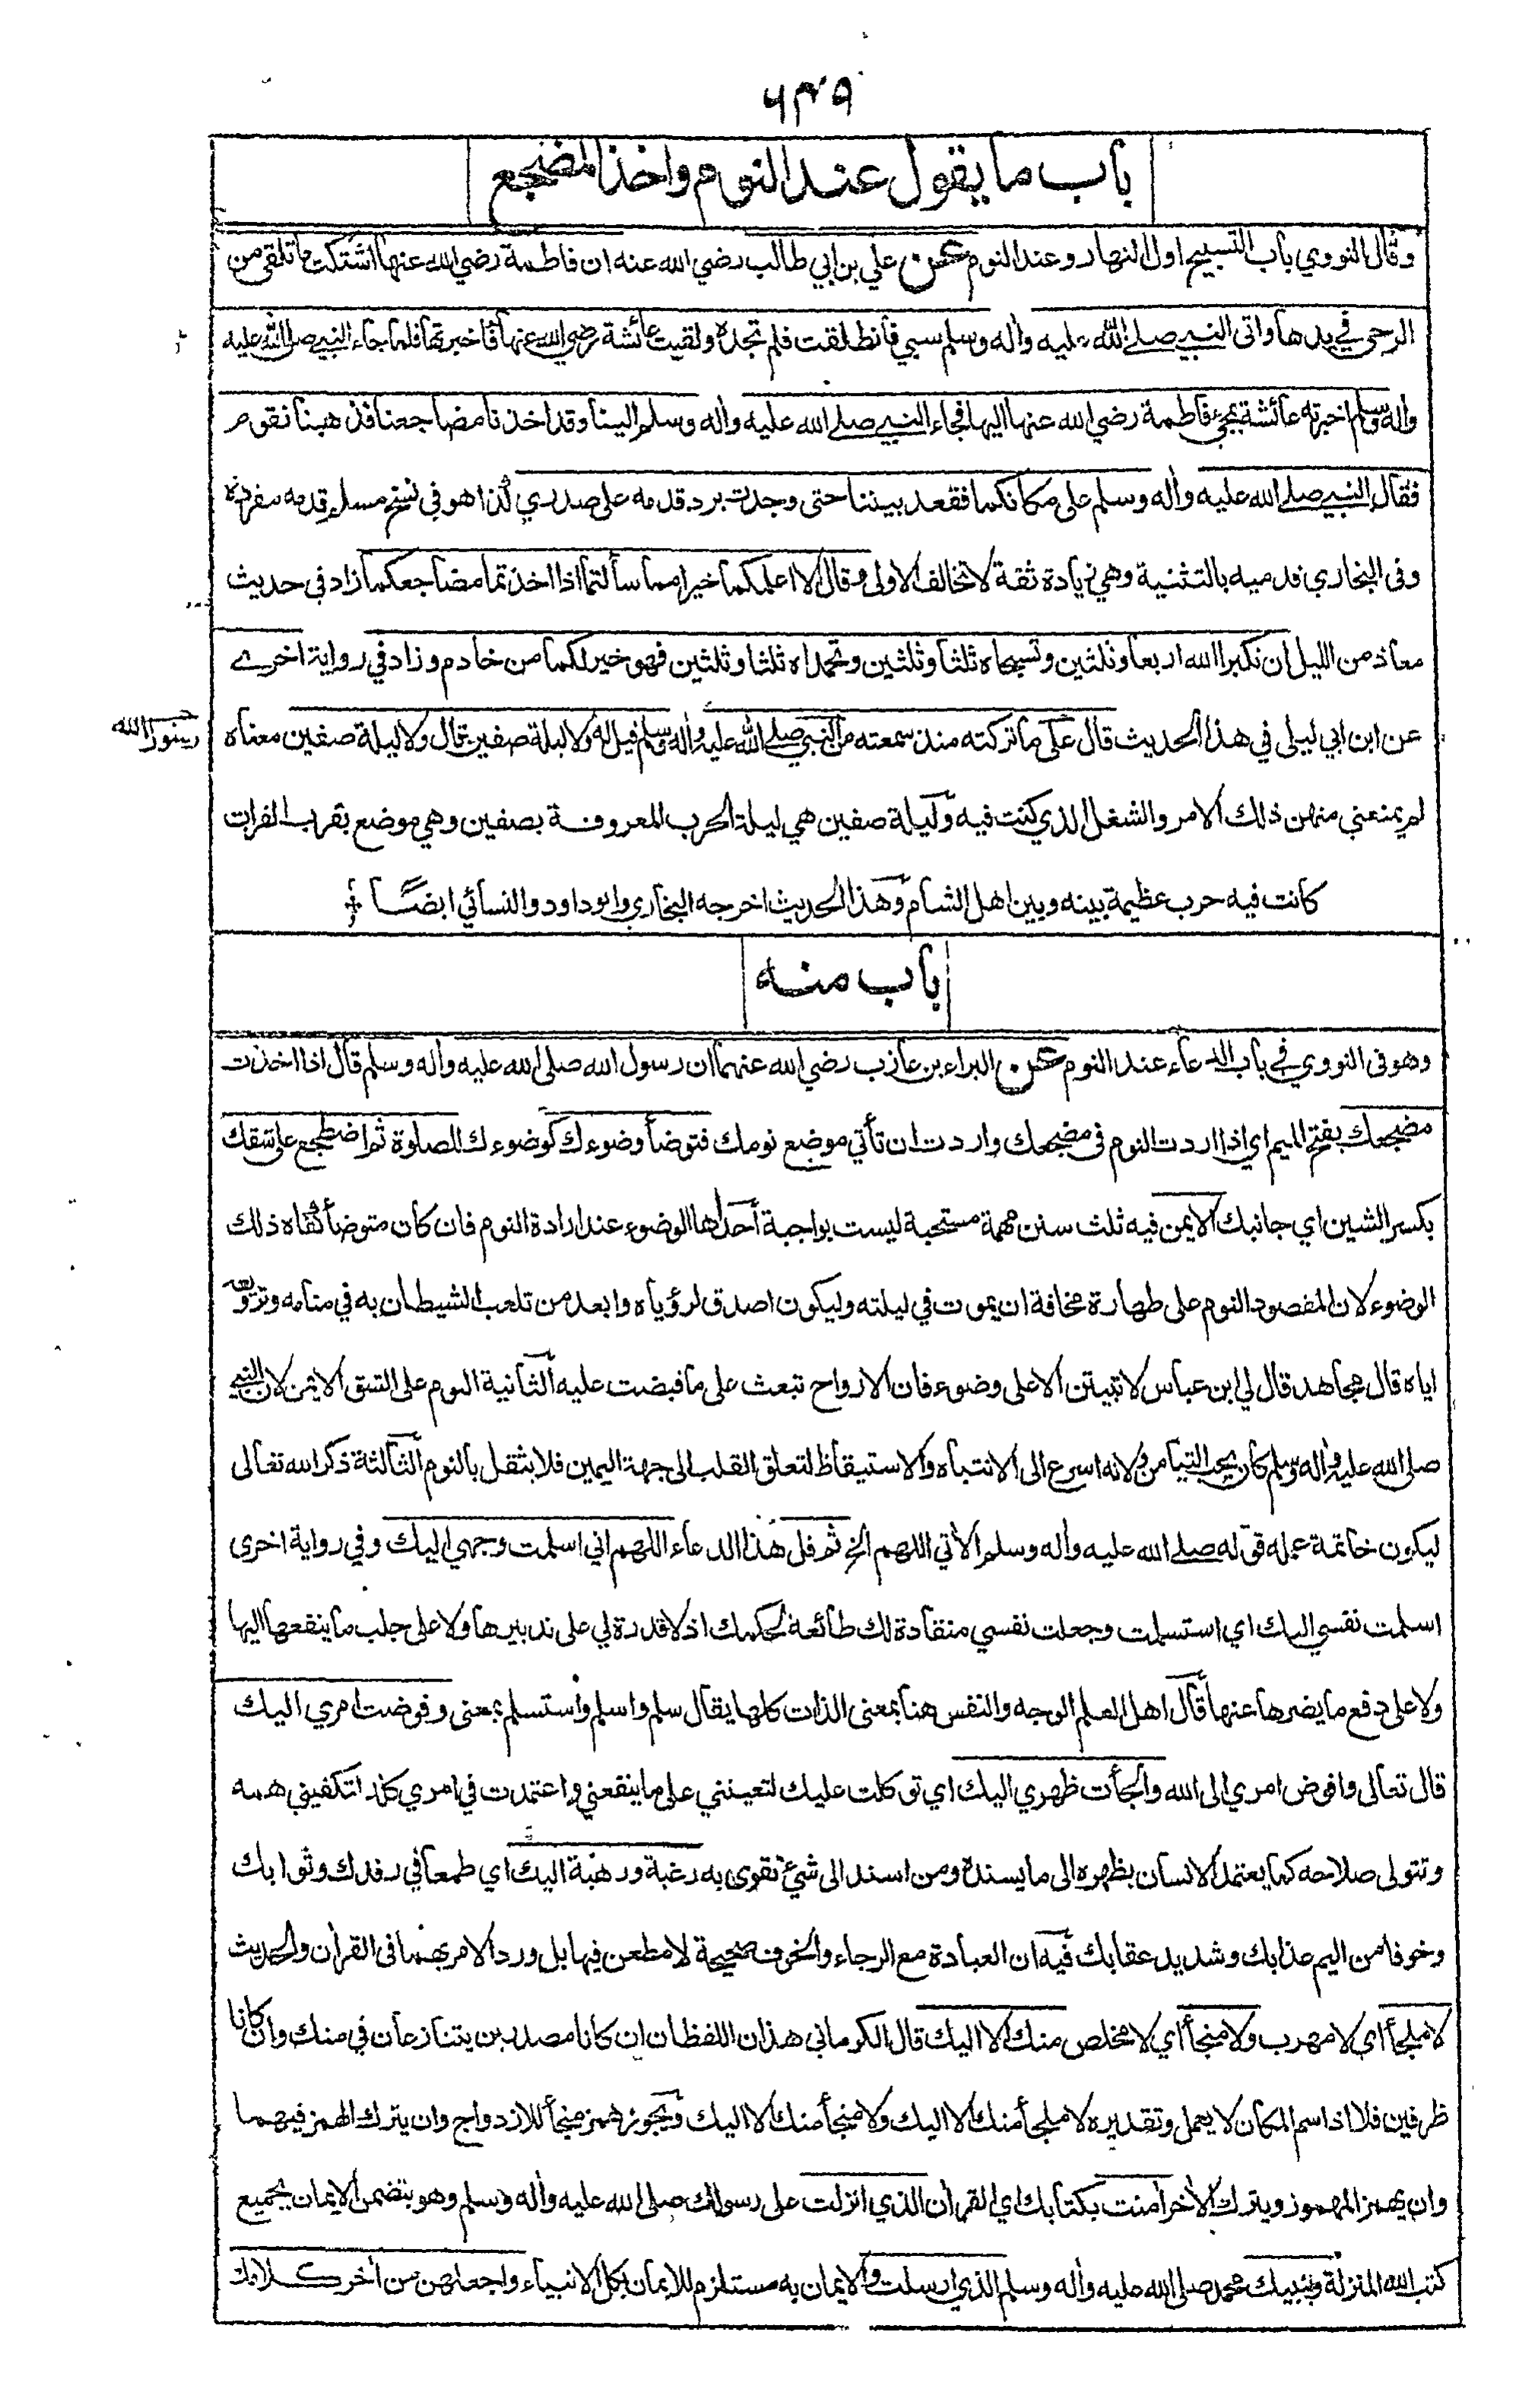 ٦٣٩
باب ما يقول عند النوم واخذ المضجع
وقال النووي باب التسبيح اول النهار وعند النوم عن علي بن ابي طالب رضي الله عنه ان فاطمة رضي الله عنها اشتكت ما تلقى من
الرحى في يدها واتى النبي صلى الله عليه واله وسلم سبي فانطلقت فلم تجده ولقيت عائشة رضي الله عنها فاخبرتها فلما جاء النبي صلى الله عليه
واله وسلم اخبرته عائشة بمجئ فاطمة رضي الله عنها اليها فجاء النبي صلى الله عليه واله وسلم الينا وقد اخذنا مضاجعنا فذهبنا نقوم
فقال النبي صلى الله عليه واله وسلم على مكانكما فقعد بيننا حتى وجدت برد قدمه على صدري كذا هو في نسخ مسلم قدمه مفردة
وفى البخاري قدميه بالتثنية وهي زيادة ثقة لا تخالف الاولى وقال الا اعلمكما خيرا مما سألتما اذا اخذتما مضاجعكما زاد في حديث
معاذ من الليل ان تكبرا الله اربعا وثلثين وتسبحاه ثلثا وثلثين وتحمداه ثلثا وثلثين فهو خير لكما من خادم وزاد في رواية اخرى
عن ابن ابي ليلى في هذا الحديث قال علي ما تركته منذ سمعته من النبي صلى الله عليه واله وسلم قيل له ولا ليلة صفين قال ولا ليلة صفين معناه
لم يمنعني منهن ذلك الامر والشغل الذي كنت فيه وليلة صفين هي ليلة الحرب المعروفة بصفين وهي موضع بقرب الفرات
كانت فيه حرب عظيمة بينه وبين اهل الشام وهذا الحديث اخرجه البخاري وابو داود والنسائي ايضا
باب منه
وهو فى النووي في باب الدعاء عند النوم عن البراء بن عازب رضي الله عنهما ان رسول الله صلى الله عليه واله وسلم قال اذا اخذت
مضجعك بفتح الميم اي اذا اردت النوم فى مضجعك واردت ان تأتي موضع نومك فتوضأ وضوءك كوضوءك للصلوة ثم اضطجع على شقك
بكسر الشين اي جانبك الايمن فيه ثلث سنن مهمة مستحبة ليست بواجبة احداها الوضوء عند ارادة النوم فان كان متوضأ كفاه ذلك
الوضوء لان المقصود النوم على طهارة مخافة ان يموت في ليلته وليكون اصدق لرؤياه وابعد من تلعب الشيطان به في منامه وترويعه
اياه قال مجاهد قال لي ابن عباس لا تبيتن الا على وضوء فان الارواح تبعث على ما قبضت عليه الثانية النوم على الشق الايمن لان النبي
صلى الله عليه واله وسلم كان يحب التيامن ولانه اسرع الى الانتباه والاستيقاظ لتعلق القلب الى جهة اليمين فلا يثقل بالنوم الثالثة ذكر الله تعالى
ليكون خاتمة عمله قوله صلى الله عليه واله وسلم الأتي اللهم الخ ثم قل هذا الدعاء اللهم اني اسلمت وجهي اليك وفي رواية اخرى
اسلمت نفسي اليك اي استسلمت وجعلت نفسي منقادة لك طائعة لحكمك اذ لا قدرة لي على تدبيرها ولا على جلب ما ينفعها اليها
ولا على دفع ما يضرها عنها قال اهل العلم الوجه والنفس هنا بمعنى الذات كلها يقال سلم واسلم واستسلم بمعنى وفوضت امري اليك
قال تعالى وافوض امري الى الله والجأت ظهري اليك اي توكلت عليك لتعينني على ما ينفعني واعتمدت في امري كله لتكفيني همه
وتتولى صلاحه كما يعتمد الانسان بظهره الى ما يسنده ومن اسند الى شيء تقوى به رغبة ورهبة اليك اي طمعا في رفدك وثوابك
وخوفا من اليم عذابك وشديد عقابك فيه ان العبادة مع الرجاء والخوف صحيحة لا مطعن فيها بل ورد الامر بهما فى القرأن والحديث
لا ملجأ اي لا مهرب ولا منجأ اي لا مخلص منك الا اليك قال الكرماني هذان اللفظان ان كانا مصدرين يتنازعان في منك وان كانا
ظرفين فلا اذ اسم المكان لا يعمل وتقديره لا ملجأ منك الا اليك ولا منجأ منك الا اليك ويجوز همز منجأ للازدواج وان يترك الهمز فيهما
وان يهمز المهموز ويترك الأخر امنت بكتابك اي القرأن الذي انزلت على رسولك صلى الله عليه واله وسلم وهو يتضمن الايمان بجميع
كتب الله المنزلة وبنبيك محمد صلى الله عليه واله وسلم الذي ارسلت والايمان به مستلزم للايمان بكل الانبياء واجعلهن من أخر كلامك